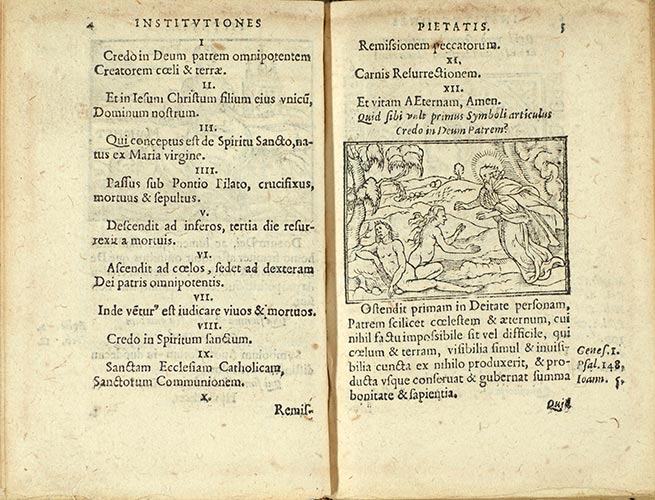 4 INSTITVTIONES
I
Credo in Deum patrem omnipotentem
Creatorem cœli & terræ.
II.
Et in Iesum Christum filium eius vnicũ,
Dominum nostrum.
III.
Qui conceptus est de Spiritu Sancto, na-
tus ex Maria virgine.
IIII.
Passus sub Pontio Pilato, crucifixus,
mortuus & sepultus.
V.
Descendit ad inferos, tertia die resur-
rexit a mortuis.
VI.
Ascendit ad cœlos, sedet ad dexteram
Dei patris omnipotentis.
VII.
Inde vẽturꝰ est iudicare viuos & mortuos.
VIII.
Credo in Spiritum sanctum.
IX.
Sanctam Ecclesiam Catholicam,
Sanctorum Communionem.
X.
Remis-
PIETATIS. 5
Remissionem peccatorum.
XI.
Carnis Resurrectionem.
XII.
Et vitam AEternam, Amen.
Quid sibi vult primus Symboli articulus
Credo in Deum Patrem?
Ostendit primam in Deitate personam,
Patrem scilicet cœlestem & æternum, cui
nihil factu impossibile sit vel difficile, qui
cœlum & terram, visibilia simul & inuisi-
bilia cuncta ex nihilo produxerit, & pro-
ducta vsque conseruat & gubernat summa
bonitate & sapientia.
Genes. 1.
Psal. 148,
Ioann. 5.